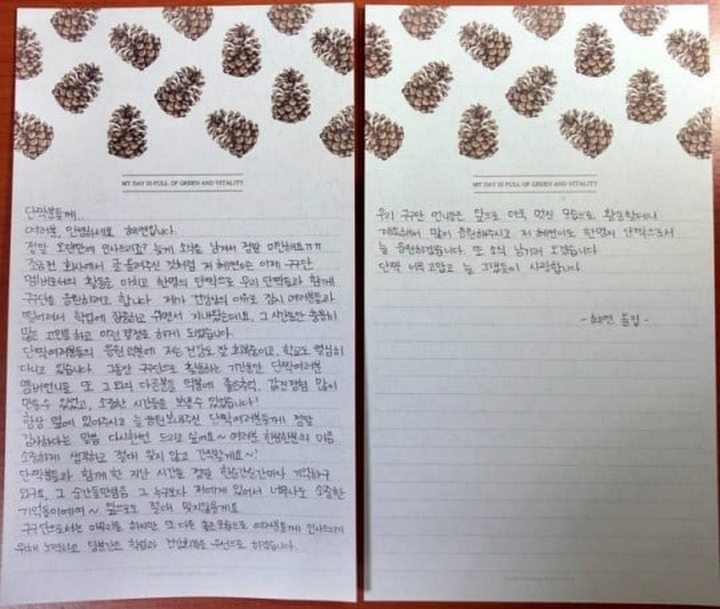 MY DAY IS FULL OF GREEN AND VITALITY
단짝분들께..
여러분, 안녕하세요 혜연입니다.
정말 오랜만에 인사드리죠? 늦게 소식을 남겨서 정말 미안해요ㅠㅠ
조금전 회사에서 글 올려주신 것처럼 저 혜연이는 이제 구구단
멤버로서의 활동은 마치고 한명의 단짝으로 우리 단짝들과 함께
구구단을 응원하려고 합니다. 제가 건강상의 이유로 잠시 여러분들과
떨어져서 학업에 집중하고 쉬면서 지내왔는데요, 그 시간동안 충분히
많은 고민을 하고 이런 결정을 하게 되었습니다.
단짝여러분들의 응원 덕분에 저는 건강도 잘 회복중이고, 학교도 열심히
다니고 있습니다. 그동안 구구단으로 활동하는 기간동안 단짝여러분
멤버언니들 또 그 외의 다른분들 덕분에 좋은추억, 값진경험 많이
만들 수 있었고, 소중한 시간들을 보낼 수 있었습니다!
항상 옆에 있어주시고 늘 응원보내주신 단짝여러분들께 정말
감사하다는 말씀 다시한번 드리고 싶어요~ 여러분 한분한분의 마음
소중하게 생각하고 절대 잊지 않고 간직할게요~!
단짝분들과 함께 한 지난 시간들 정말 한순간순간마다 기억하구
있구요, 그 순간들만큼은 그 누구보다 저에게 있어서 너무나도 소중한
기억들이에요~ 앞으로도 절대 잊지않을게요
구구단으로서는 마무리를 하지만 또 다른 좋은모습으로 여러분들께 인사드리기
위해 노력하고, 당분간은 학업과 건강회복을 우선으로 하겠습니다.
MY DAY IS FULL OF GREEN AND VITALITY
우리 구구단 언니들은 앞으로 더욱 멋진 모습으로 활동할테니
계속해서 많이 응원해주시고 저 혜연이도 한명의 단짝으로서
늘 응원하겠습니다. 또 소식 남기러 오겠습니다
단짝 너무 고맙고 늘 그랬듯이 사랑합니다.
- 혜연 올림 -